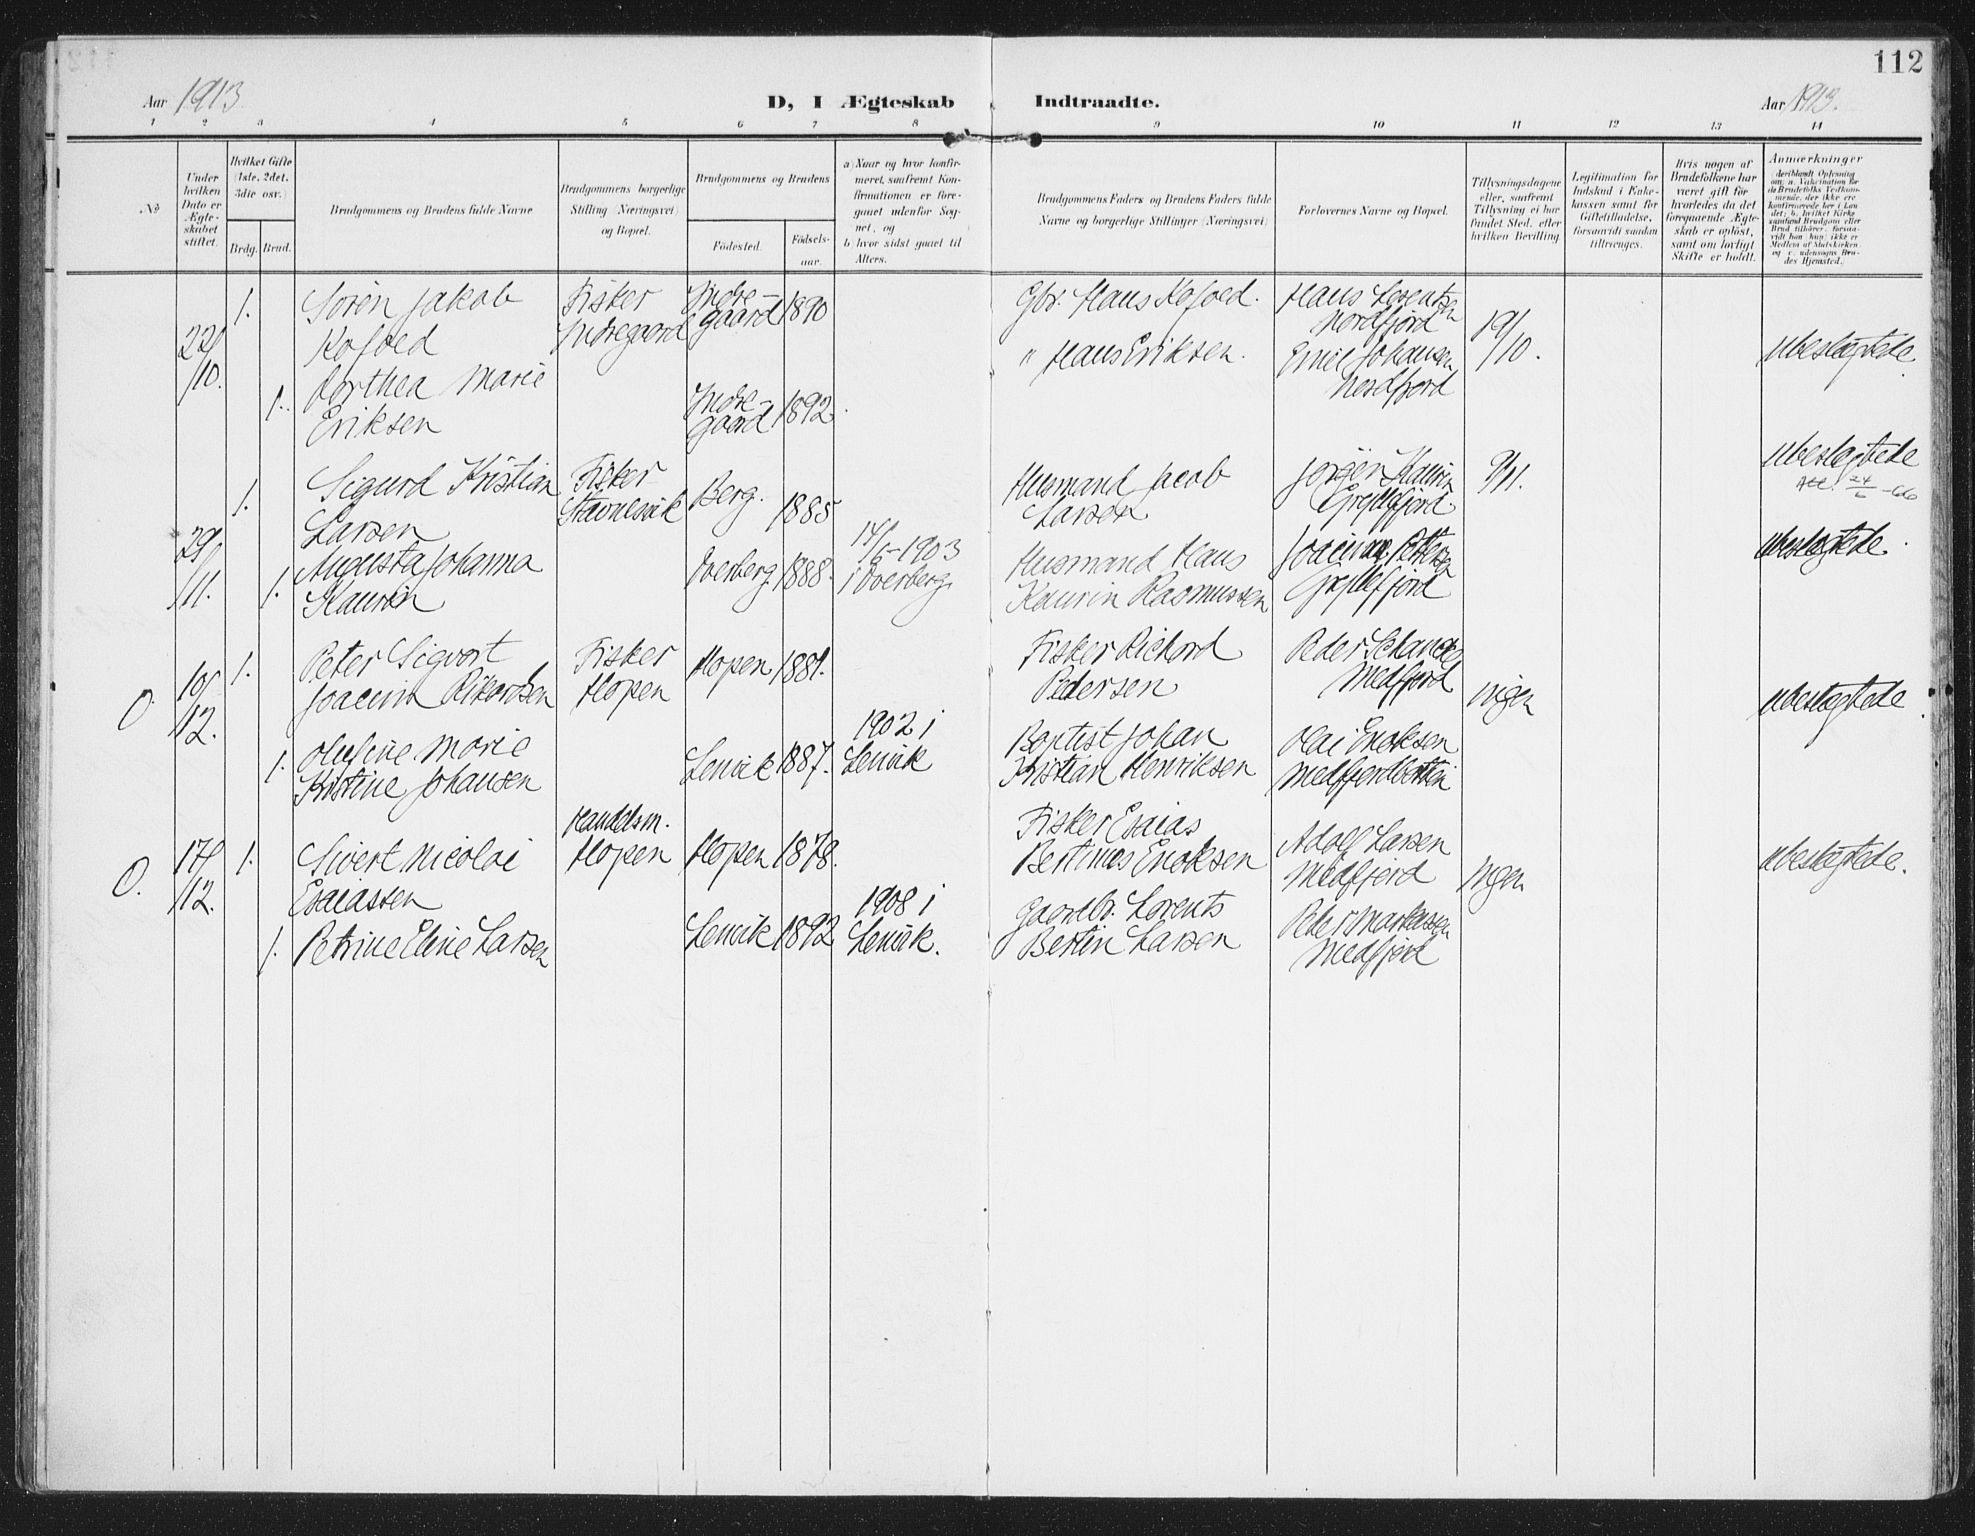 112
Aar 1913
D, I Ægteskab Indtraadte.
Aar 1913.
1 2 3 4 5 6 7 8 9 10 11 12 13 14
No
Under hvilken Dato er Ægteskabet stiftet.
Hvilket Gifte (1ste, 2det, 3die osv.)
Brdg. Brud.
Brudgommens og Brudens fulde Navne
Brudgommens borgerlige Stilling (Næringsvei) og Bopæl.
Brudgommens og Brudens
Födested.
Födselsaar.
a) Naar og hvor konfirmeret, saafremt Konfirmationen er foregaaet udenfor Sognet, og
b) hvor sidst gaaet til Alters.
Brudgommens Faders og Brudens Faders fulde Navne og borgerlige Stillinger (Næringsvei)
Forlovernes Navne og Bopæl.
Tillysningsdagene eller, saafremt Tillysning ei har fundet Sted, efter hvilken Bevilling.
Legitimation for Indskud i Enkekassen samt for Giftetilladelse, forsaavidt saadan tiltrænges.
Hvis nogen af Brudefolkene har været gift för hvorledes da det foregaaende Ægteskab er oplöst, samt om lovligt Skifte er holdt.
Anmærkninger
(deriblandt Oplysning om: a. Vaccination for de Brudefolks Vedkommende, der ikke ere konfirmerede her i Landet; b. hvilket Kirkesamfund Brudgom eller Brud tilhörer, forsaavidt han (hun) ikke er Medlem af Statskirken, og c. udensogns Brudes Hjemsted.)
22/10. 1. Sören Jakob Kofoed
Fisker Indregaard
Indregaard 1890
Gbr. Hans Kofoed.
Hans Lorentzen Nordfjord
19/10.
ubeslægtede.
1. Dorthea Marie Eriksen
Indregaard 1892.
" Hans Eriksen.
Emil Johansen Nordfjord
29/11. 1. Sigurd Kristian Larsen
Fisker
Berg. 1885
Husmand Jacob Larsen
Jörgen Kaurin Gryllefjord
9/11.
ubeslægtede
Att. 24/6 -66
1. Augusta Johanna Kaurin
Overberg. 1888.
14/6-1903 i Overberg.
Husmand Hans Kaurin Rasmussen
Pettersen Gryllefjord
ubeslægtede.
0. 10/12. 1. Peter Sigvart Joacim Rikardsen
Fisker Hopen
Hopen 1881.
Fisker Richard Pedersen
Peder Schancke Medfjord
ingen
ubeslægtede.
1. Olufine Marie Kristine Johansen
Lenvik 1887.
1902 i Lenvik
Baptist Johan Kristian Henriksen
Olai Enoksen Medfjordbotten
0. 17/12. 1. Sivert Nicolai Esaiassen
Handelsm. Hopen
Hopen 1878.
Fisker Esaias Bertinus Enoksen
Adolf Larsen Medfjord
ingen
ubeslægtede.
1. Petrine Eline Larsen
Lenvik 1892
1908 i Lenvik.
Gaardbr. Lorents Bertin Larsen
Peder Markussen Medfjord